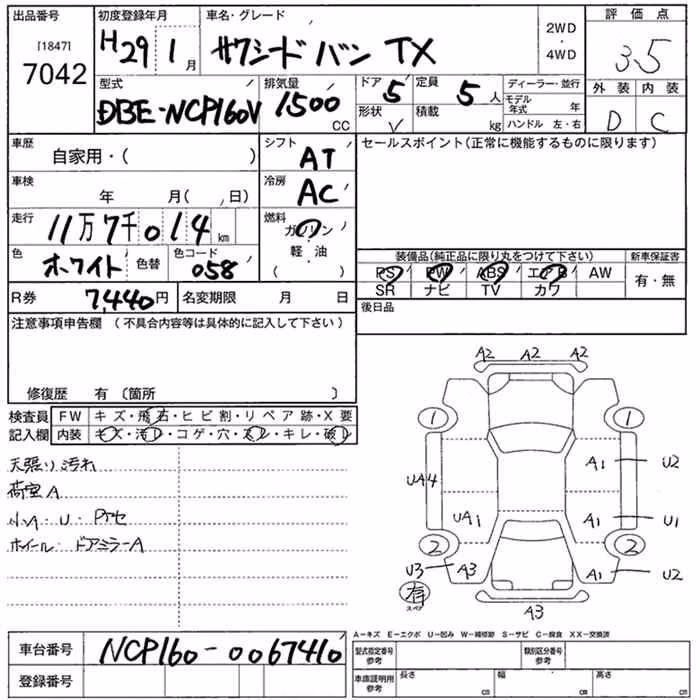 出品番号 [1847] 7042
初度登録年月 H29 1月
車名・グレード サクシードバン TX
2WD・4WD
評価点 3.5
外装 D 内装 C
型式 DBE-NCP160V
排気量 1500 CC
ドア 5 形状 V
定員 5人 積載 kg
ディーラー・並行
モデル年式 年
ハンドル 左・右
車歴 自家用・( )
車検 年 月( , 日)
走行 11万7千014 km
色 ホワイト 色替 色コード 058
シフト AT
冷房 AC
燃料 ガソリン・軽・油 ( )
セールスポイント(正常に機能するものに限ります)
装備品(純正品に限り丸をつけて下さい) 新車保証書
PS PW ABS エアB AW 有・無
SR ナビ TV カワ
R券 7,440円 名変期限 月 日
後日品
注意事項申告欄 (不具合内容等は具体的に記入して下さい)
修復歴 有 〔箇所 〕
検査員記入欄
FW キズ・飛石・ヒビ割・リペア跡・X要
内装 キズ・汚レ・コゲ・穴・スレ・キレ・破レ
天張り汚れ
荷室A
小A・U・Pアセ
ホイール・ドアミラーA
A2 A2 A2
1 1
A1 U2
UA4
UA1 A1 U1
2 2
U3 A3 A1 U2
有 スペア
A3
A-キズ E-エクボ U-凹み W-補修跡 S-サビ C-腐食 XX-交換済
車台番号 NCP160-0067410
登録番号
型式指定番号 参考 類別区分番号 参考
車庫証明用 参考 長さ cm 幅 cm 高さ cm